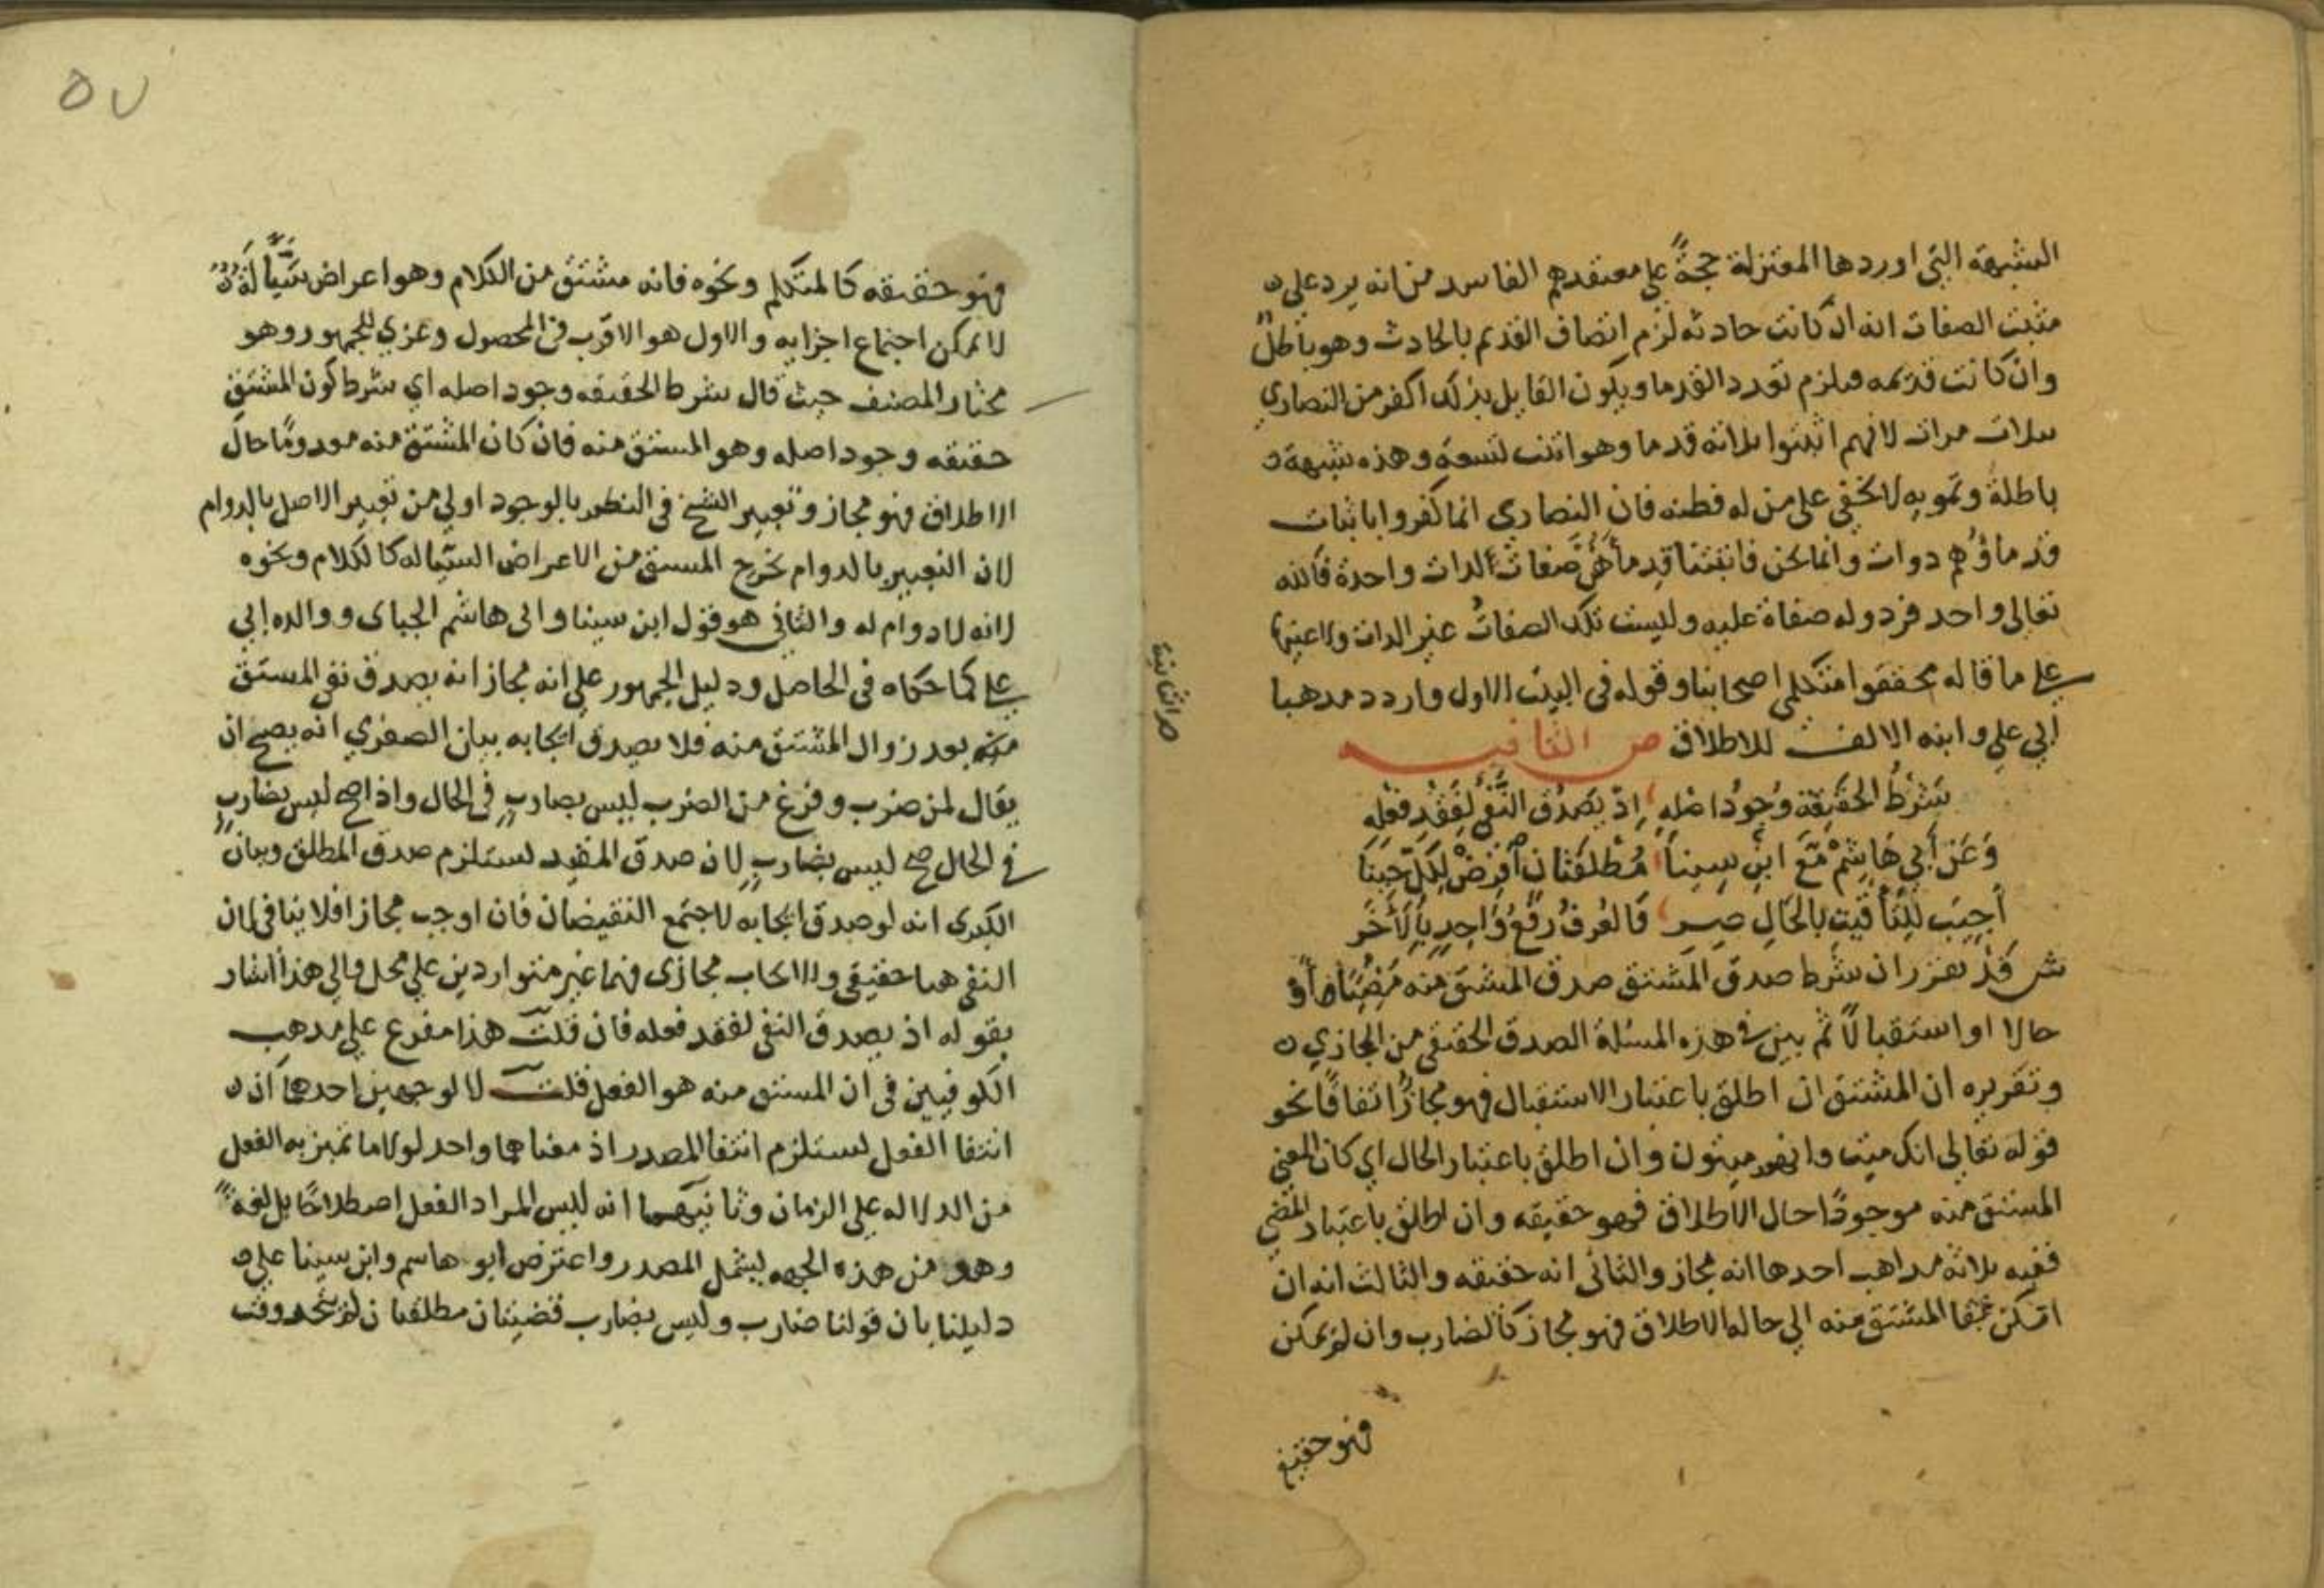 الشبهة التي اوردها المعتزلة حجةً على معتقدهم الفاسد من انه يرد على
مثبت الصفات انه ان كانت حادثه لزم اتصاف القديم بالحادث وهو باطلٌ
وان كانت قديمه فيلزم تعدد القدما ويكون القايل بذلك اكفر من النصاري
بثلاث مرات لانهم اثبتوا ثلاثه قدما وهو اثبت لتسعةٍ وهذه شبهة
باطلة وتمويه لا يخفي على من له فطنه فان النصاري انما كفروا باثبات
قدما هم دوات وانما نحن فاثبتنا قدما هي صفات الدات واحدة فالله
تعالى واحد فرد وله صفاة عليه وليست تلك الصفاتُ غير الدات ولا عينها
على ما قاله محققوا متكلمي اصحابنا وقوله في البيت الاول واردد مدهبا
ابي علي وابنه الالف للاطلاق ص الثانيه
شرْطُ الحَقيقة وُجودُ اصْلهِ، اِذ يَصدُق النَّفْيُ لِفَقْدِ فعْلِهِ
وَعَن أبي هَاشِمْ مَع ابنِ سِينا، مُطْلقتان افرضْ لِكلٍّ حِينَا
أجيبَ للتَّأقيت بالحَالِ صير، فَالعُرفُ رفْعُ وَاحِدٍ بالآخَر
ش قد تقرر ان شرط صدق المشتق صدق المشتق منه مُضِيًّا او
حالا او استقبالًا ثم بين في هذه المسئلة الصدق الحقيقي من المجازي
وتقريره ان المشتق ان اطلق باعتبار الاستقبال فهو مجازٌ اتفاقًا نحو
قوله تعالى انك ميت وانهم ميتون وان اطلق باعتبار الحال اي كان المعني
المشتق منه موجودًا حال الاطلاق فهو حقيقه وان اطلق باعتبار المضي
ففيه ثلاثه مداهب احدها انه مجاز والثاني انه حقيقه والثالث انه ان
امكن بقا المشتق منه الي حاله الاطلاق فهو مجاز كالضارب وان لم يمكن
فهو حقيقة
ص الثانية
٥٧
فهو حقيقه كالمتكلم ونحوه فانه مشتق من الكلام وهو اعراض سَيَّالَةٌ
لا يمكن اجتماع اجزايه والاول هو الاقرب في المحصول وعزي للجمهور وهو
مختار المصنف حيث قال شرط الحقيقه وجود اصله اي شرط كون المشتق
حقيقه وجود اصله وهو المشتق منه فان كان المشتق منه معدومًا حال
الاطلاق فهو مجاز وتعبير الشيخ في النظم بالوجود اولي من تعبير الاصل بالدوام
لان التعبير بالدوام يخرج المشتق من الاعراض السياله كالكلام ونحوه
لانه لا دوام له والثاني هو قول ابن سينا وابي هاشم الجباى ووالده ابي
علي كما حكاه في الحاصل ودليل الجمهور على انه مجاز انه يصدق نفي المشتق
منه بعد زوال المشتق منه فلا يصدق ايجابه بيان الصغري انه يصح ان
يقال لمن ضرب وفرغ من الضرب ليس بضاربٍ في الحال واذا صح ليس بضاربٍ
في الحال صح ليس بضاربٍ لان صدق المقيد يستلزم صدق المطلق وبيان
الكبرى انه لو صدق ايجابه لاجتمع النقيضان فان اوجب مجازا فلا ينافي لان
النفي هنا حقيقي والايجاب مجازى فهما غير متواردين علي محل والي هذا اشار
بقوله اذ يصدق النفي لفقد فعله فان قلت هذا مفرع على مدهب
الكوفيين في ان المشتق منه هو الفعل قلت لا لوجهين احدهما ان
انتفا الفعل يستلزم انتفا المصدر اذ معناهما واحد لولا ما تميز به الفعل
من الدلاله على الزمان وثانيهما انه ليس المراد الفعل اصطلاحًا بل لغةً
وهو من هذه الجهه يشمل المصدر واعترض ابو هاشم وابن سينا على
دليلنا بان قولنا ضارب وليس بضارب قضيتان مطلقتان لم يتحد وقت